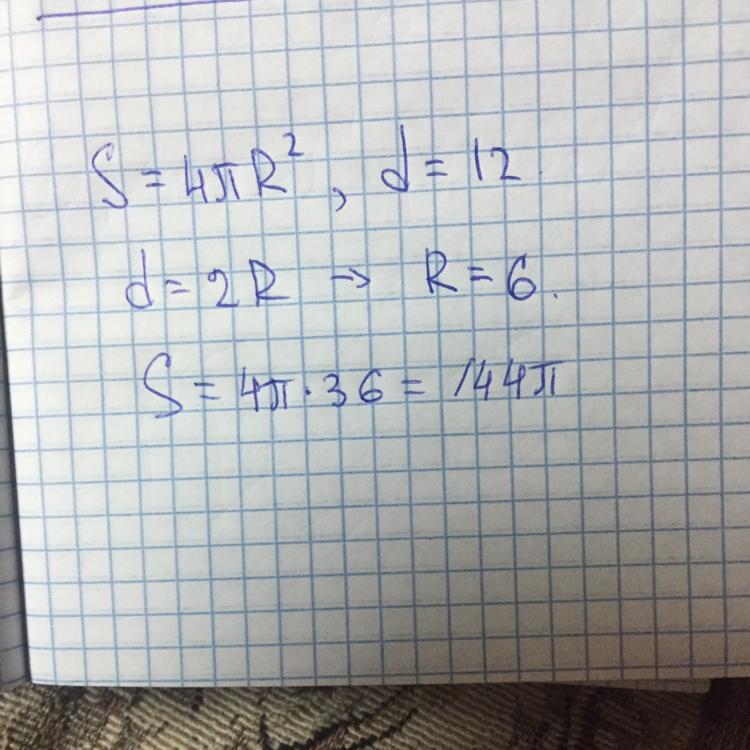 S = 4πR², d = 12
d = 2R → R = 6.
S = 4π·36 = 144π